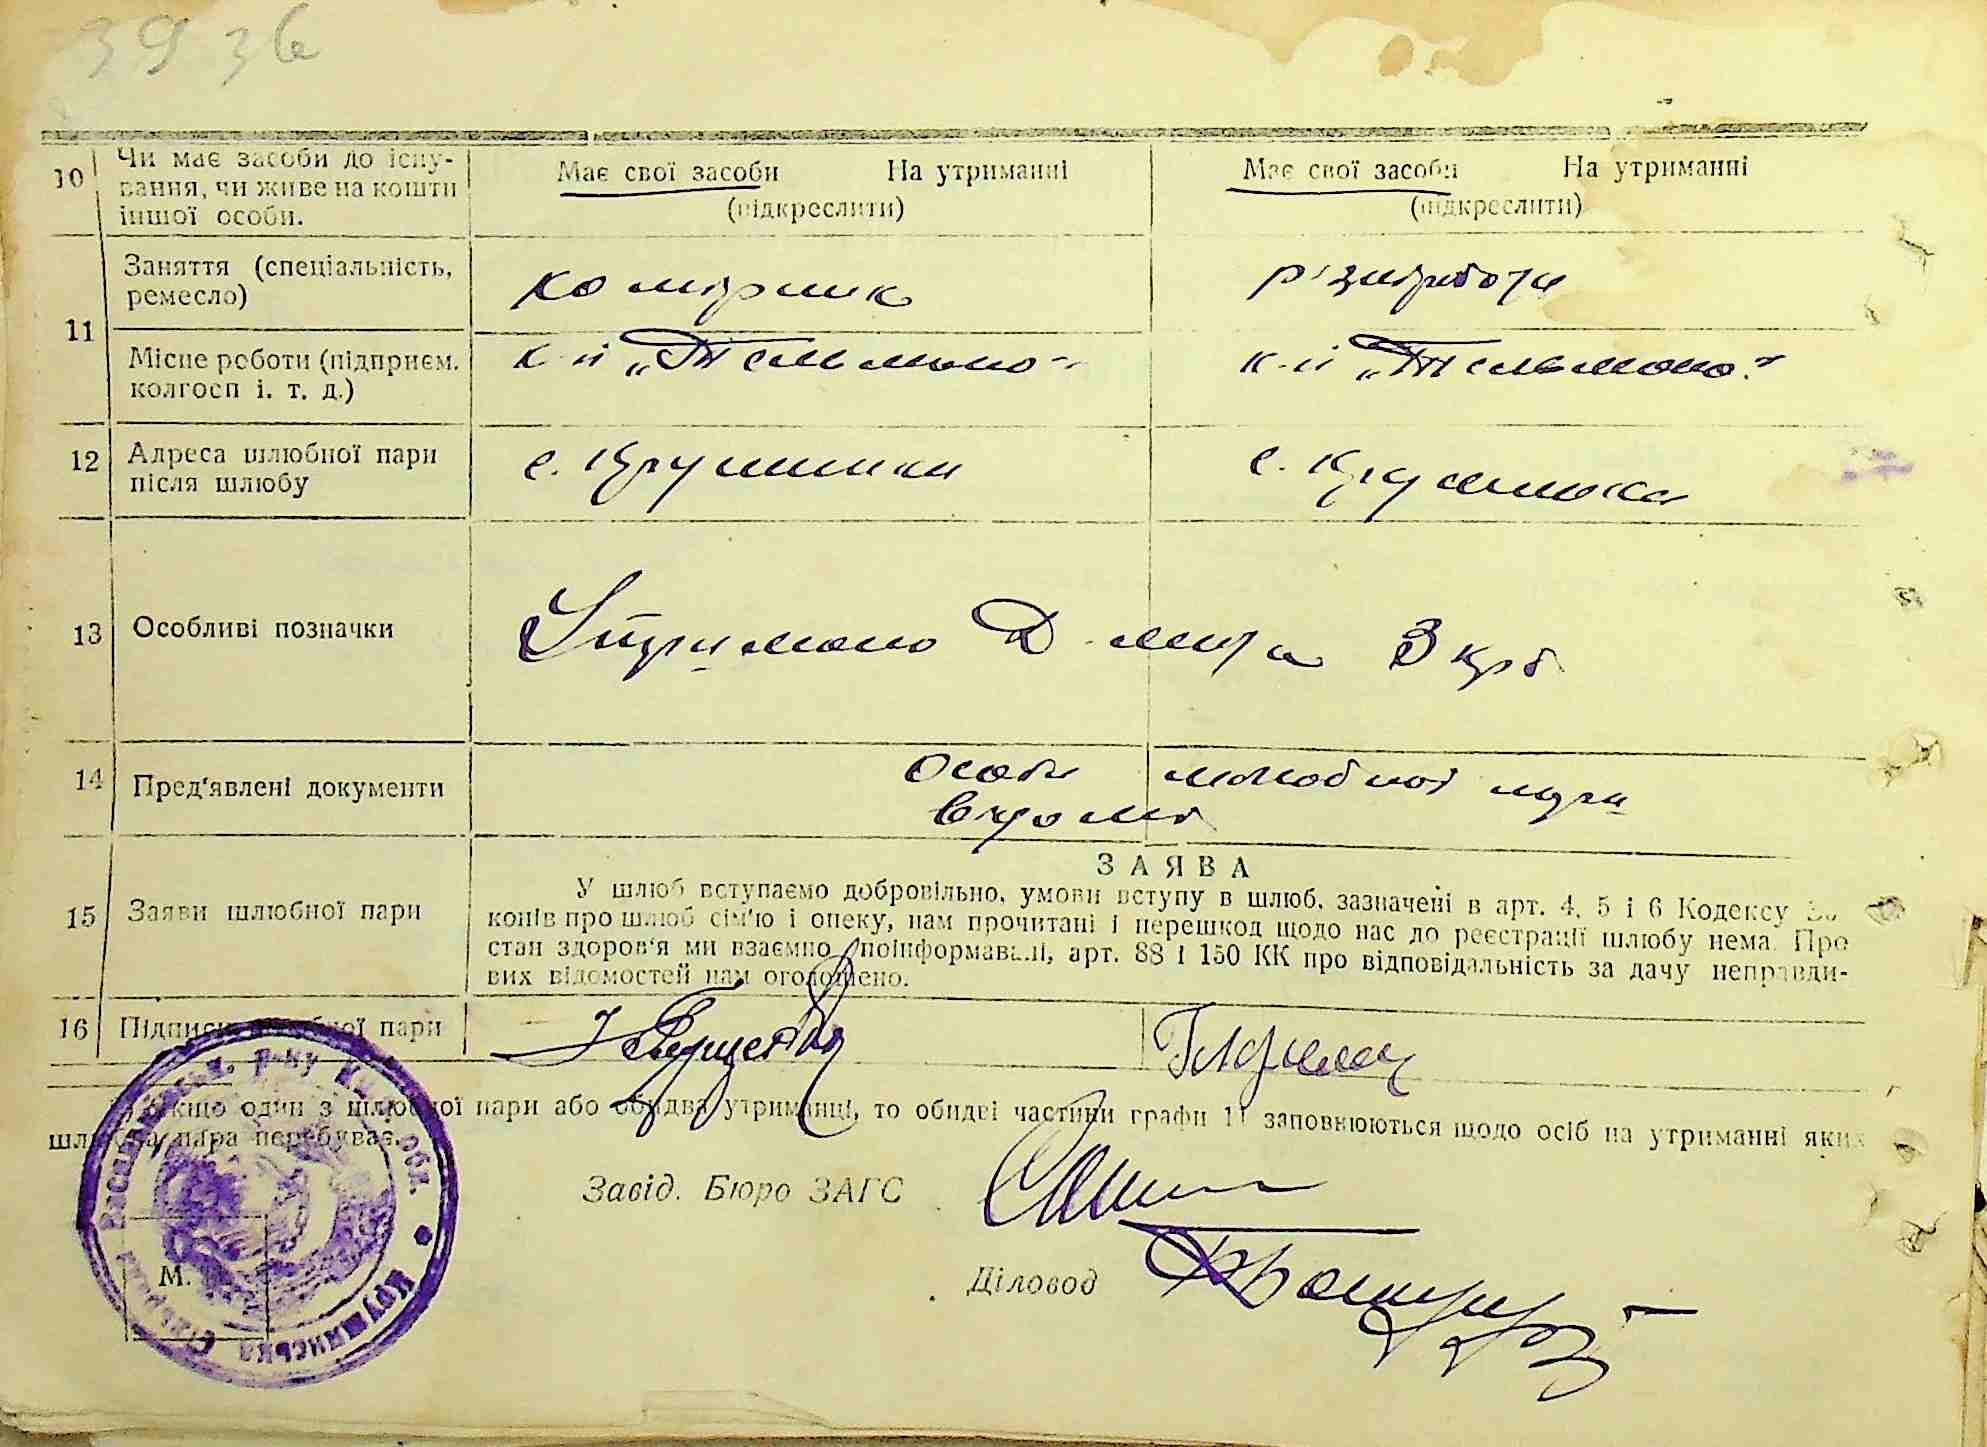 39 36
10 Чи має засоби до існу-
вання, чи живе на кошти
іншої особи.
Має свої засоби На утриманні
(підкреслити)
Має свої засоби На утриманні
(підкреслити)
11 Заняття (спеціальність,
ремесло)
комірник
різнработи
Місце роботи (підприєм.
колгосп і. т. д.)
к-п „Тельмано"
к-п „Тельмано"
12 Адреса шлюбної пари
після шлюбу
с. Крушинки
с. Крушинка
13 Особливі позначки
Утримано Д-мита 3 крб
14 Пред'явлені документи
Особи шлюбної пари
відомі
15 Заяви шлюбної пари
ЗАЯВА
У шлюб вступаємо добровільно, умови вступу в шлюб, зазначені в арт. 4, 5 і 6 Кодексу За
конів про шлюб сім'ю і опеку, нам прочитані і перешкод щодо нас до реєстрації шлюбу нема. Про
стан здоров'я ми взаємно поінформавалі, арт. 88 і 150 КК про відповідальність за дачу неправди-
вих відомостей нам оголошено.
16 Підписи шлюбної пари
Якщо один з шлюбної пари або обидва утриманці, то обидві частини графи 11 заповнюються щодо осіб на утриманні яких
шлюбна пара перебуває.
Завід. Бюро ЗАГС
Діловод
М.
Васильківськ. р-ну Київ. обл.
Крушинська Сільрада